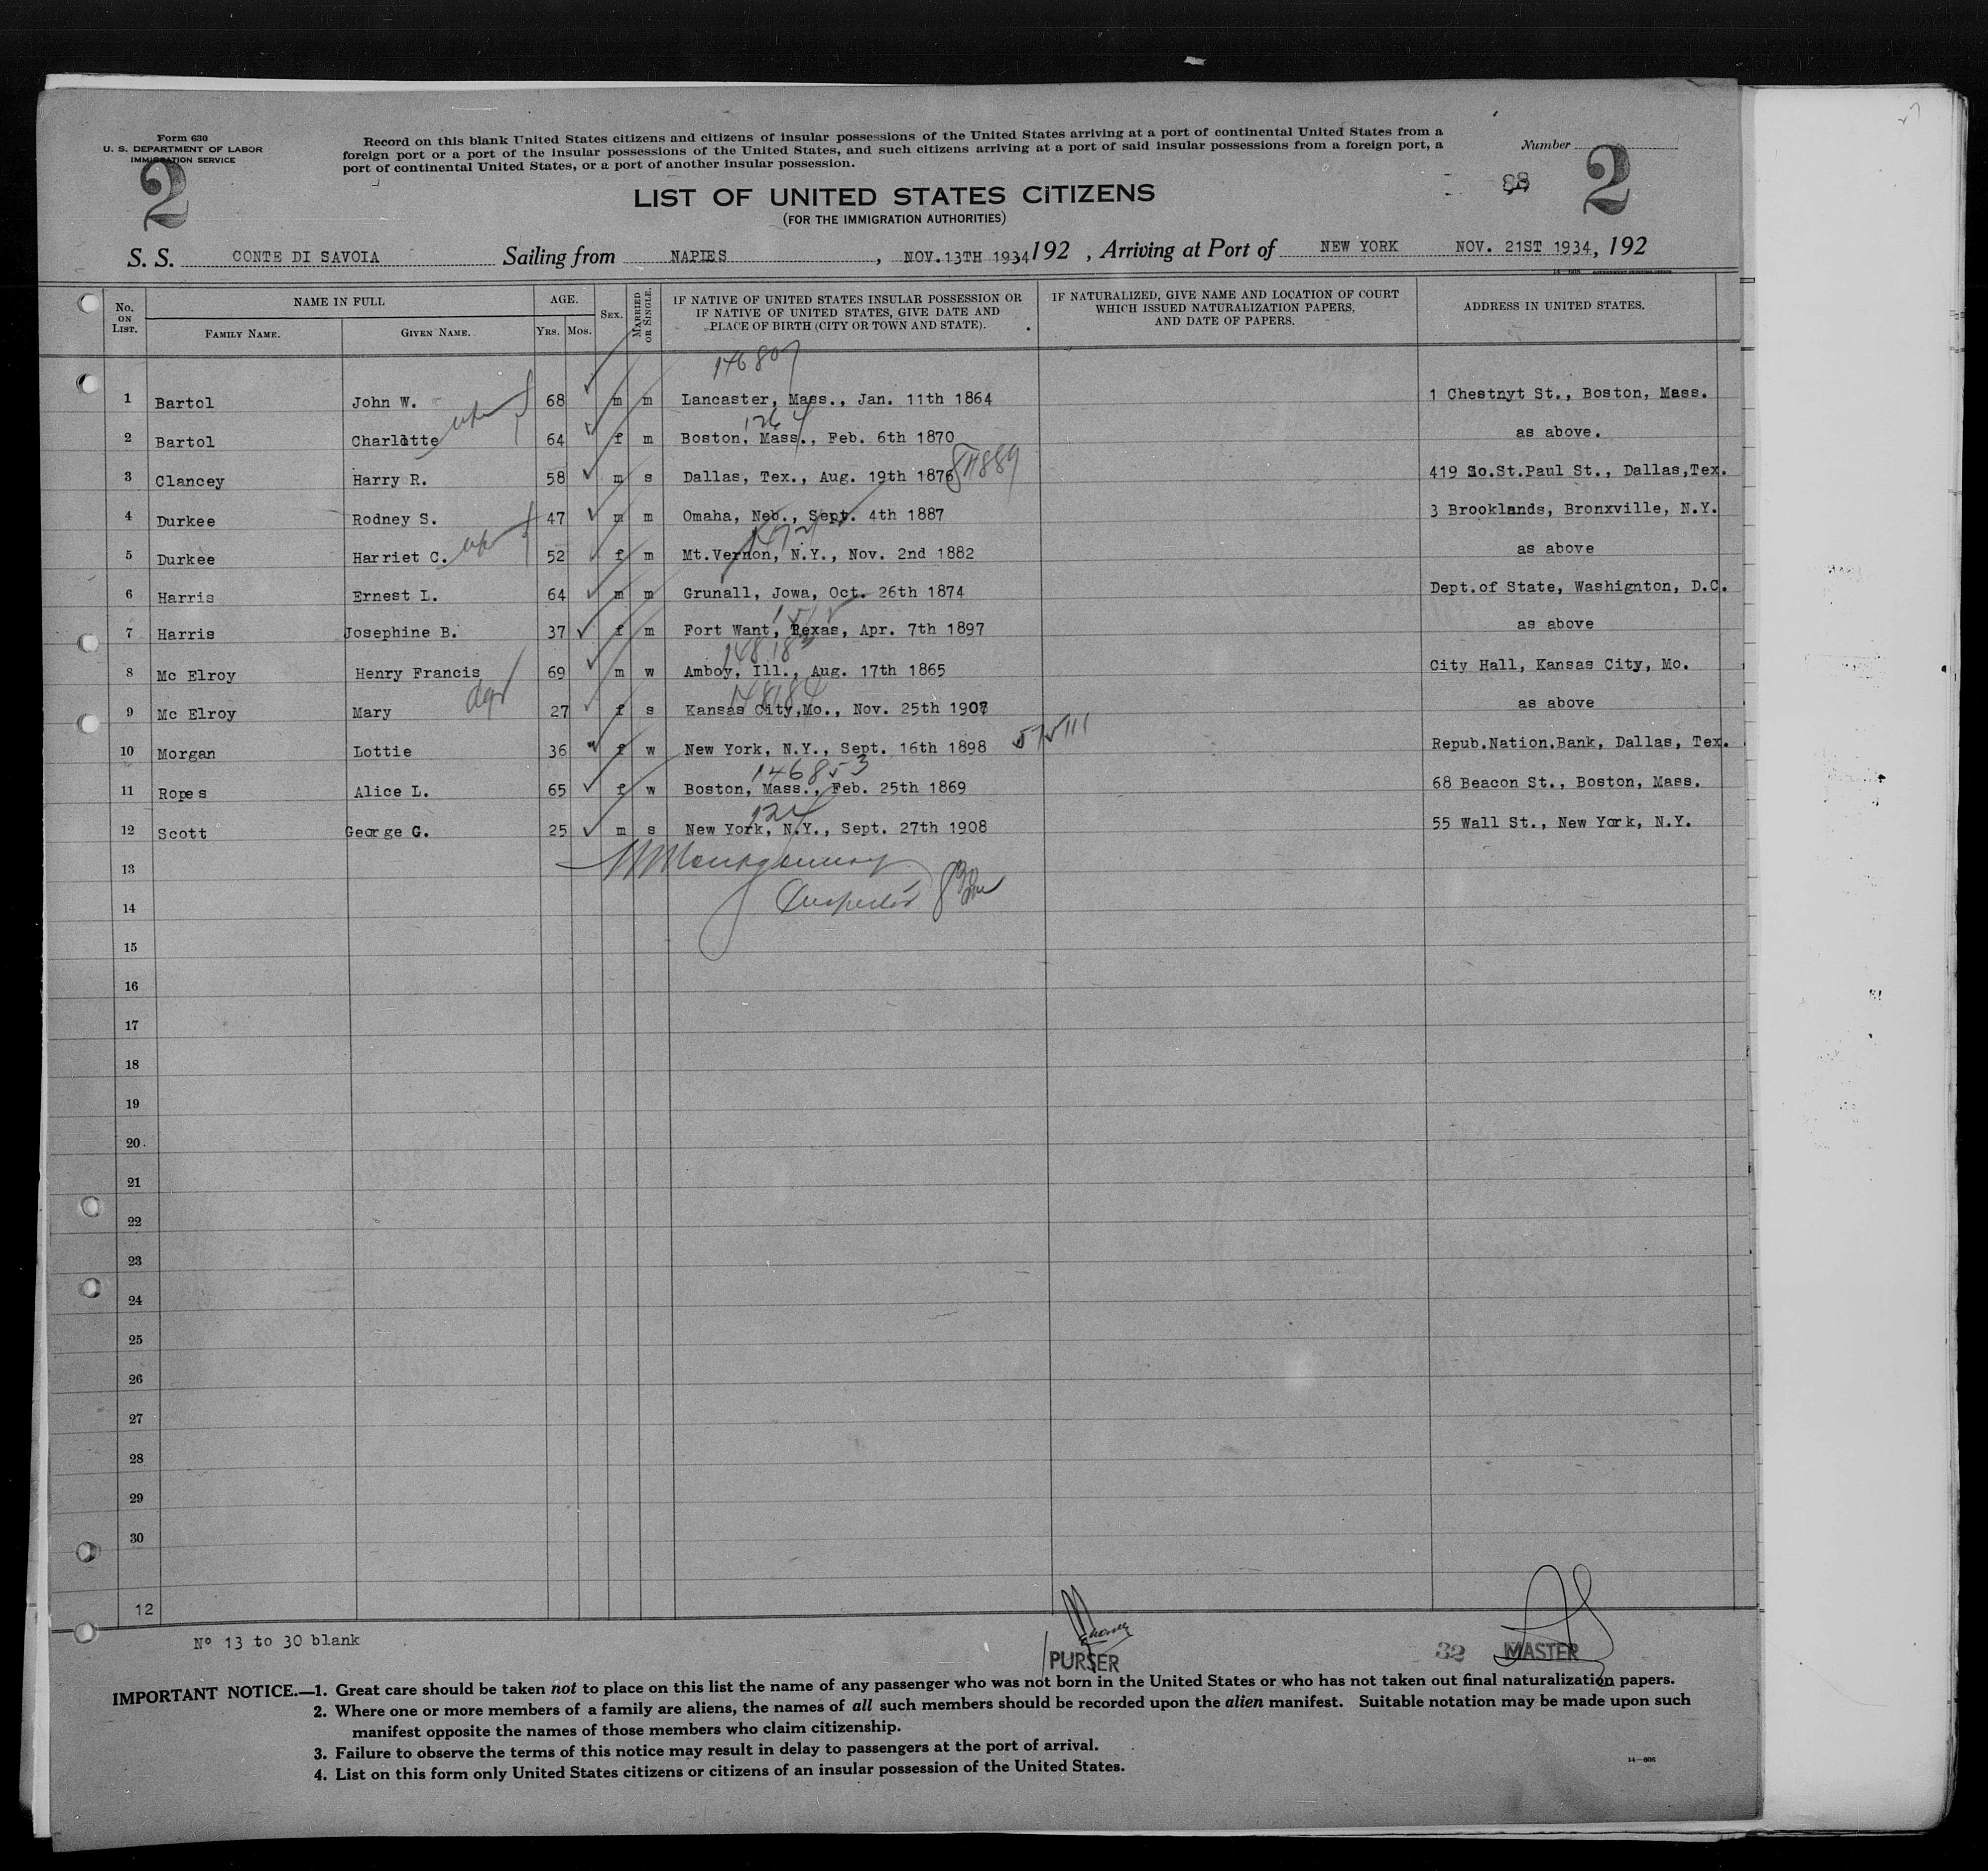 Form 630
U. S. DEPARTMENT OF LABOR
IMMIGRATION SERVICE
2
Record on this blank United States citizens and citizens of insular possessions of the United States arriving at a port of continental United States from a
foreign port or a port of the insular possessions of the United States, and such citizens arriving at a port of said insular possessions from a foreign port, a
port of continental United States, or a port of another insular possession.
Number
88
2
LIST OF UNITED STATES CITIZENS
(FOR THE IMMIGRATION AUTHORITIES)
S. S. CONTE DI SAVOIA Sailing from NAPLES , NOV.13TH 1934 192 , Arriving at Port of NEW YORK NOV. 21ST 1934, 192
No. ON LIST. NAME IN FULL FAMILY NAME. GIVEN NAME. AGE. YRS. MOS. SEX. MARRIED OR SINGLE. IF NATIVE OF UNITED STATES INSULAR POSSESSION OR IF NATIVE OF UNITED STATES, GIVE DATE AND PLACE OF BIRTH (CITY OR TOWN AND STATE). IF NATURALIZED, GIVE NAME AND LOCATION OF COURT WHICH ISSUED NATURALIZATION PAPERS, AND DATE OF PAPERS. ADDRESS IN UNITED STATES.
146807
1 Bartol John W. 68 m m Lancaster, Mass., Jan. 11th 1864 1 Chestnyt St., Boston, Mass.
2 Bartol Charlotte 64 f m Boston, Mass., Feb. 6th 1870 as above.
3 Clancey Harry R. 58 m s Dallas, Tex., Aug. 19th 1876 419 So.St.Paul St., Dallas,Tex.
4 Durkee Rodney S. 47 m m Omaha, Neb., Sept. 4th 1887 3 Brooklands, Bronxville, N.Y.
5 Durkee Harriet C. 52 f m Mt.Vernon, N.Y., Nov. 2nd 1882 as above
6 Harris Ernest L. 64 m m Grunall, Jowa, Oct. 26th 1874 Dept.of State, Washignton, D.C.
7 Harris Josephine B. 37 f m Fort Want, Texas, Apr. 7th 1897 as above
8 Mc Elroy Henry Francis 69 m w Amboy, Ill., Aug. 17th 1865 City Hall, Kansas City, Mo.
148184
9 Mc Elroy Mary 27 f s Kansas City,Mo., Nov. 25th 1907 as above
10 Morgan Lottie 36 f w New York, N.Y., Sept. 16th 1898 Repub.Nation.Bank, Dallas, Tex.
146853
11 Ropes Alice L. 65 f w Boston, Mass., Feb. 25th 1869 68 Beacon St., Boston, Mass.
12 Scott George G. 25 m s New York, N.Y., Sept. 27th 1908 55 Wall St., New York, N.Y.
13 Montgomery
14
15
16
17
18
19
20
21
22
23
24
25
26
27
28
29
30
12
Nº 13 to 30 blank
PURSER
32 MASTER
IMPORTANT NOTICE.—1. Great care should be taken not to place on this list the name of any passenger who was not born in the United States or who has not taken out final naturalization papers.
2. Where one or more members of a family are aliens, the names of all such members should be recorded upon the alien manifest. Suitable notation may be made upon such
manifest opposite the names of those members who claim citizenship.
3. Failure to observe the terms of this notice may result in delay to passengers at the port of arrival.
4. List on this form only United States citizens or citizens of an insular possession of the United States.